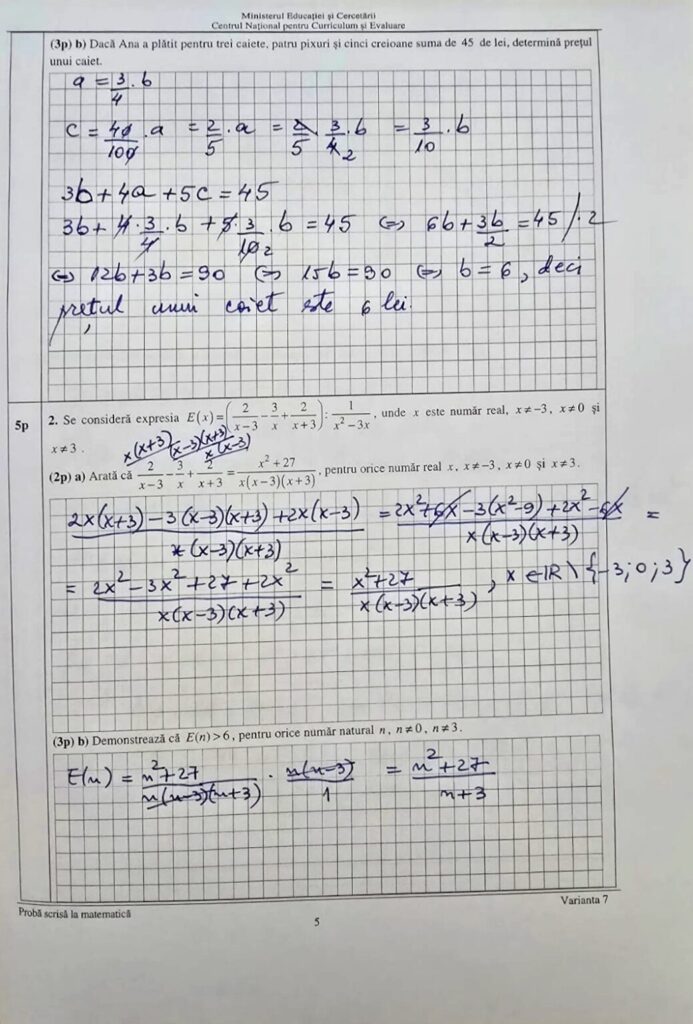 Ministerul Educației și Cercetării
Centrul Național pentru Curriculum și Evaluare
(3p) b) Dacă Ana a plătit pentru trei caiete, patru pixuri și cinci creioane suma de 45 de lei, determină prețul
unui caiet.
a = 3/4 · b
c = 40/100 · a = 2/5 · a = 2/5 · 3/4 2 · b = 3/10 · b
3b + 4a + 5c = 45
3b + 4 · 3/4 · b + 5 · 3/10 2 · b = 45 ⇔ 6b + 3b/2 = 45 /· 2
⇔ 12b + 3b = 90 ⇔ 15b = 90 ⇔ b = 6, deci
prețul unui caiet este 6 lei.
5p
2. Se consideră expresia E(x) = (2/(x−3) − 3/x + 2/(x+3)) : 1/(x² − 3x), unde x este număr real, x ≠ −3, x ≠ 0 și
x ≠ 3.
x(x+3) (x−3)(x+3) x(x−3)
(2p) a) Arată că 2/(x−3) − 3/x + 2/(x+3) = (x² + 27)/(x(x−3)(x+3)), pentru orice număr real x, x ≠ −3, x ≠ 0 și x ≠ 3.
(2x(x+3) − 3(x−3)(x+3) + 2x(x−3))/(x(x−3)(x+3)) = (2x² + 6x − 3(x² − 9) + 2x² − 6x)/(x(x−3)(x+3)) =
= (2x² − 3x² + 27 + 2x²)/(x(x−3)(x+3)) = (x² + 27)/(x(x−3)(x+3)), x ∈ ℝ \ {−3; 0; 3}
(3p) b) Demonstrează că E(n) > 6, pentru orice număr natural n, n ≠ 0, n ≠ 3.
E(n) = (n² + 27)/(n(n−3)(n+3)) · n(n−3)/1 = (n² + 27)/(n+3)
Probă scrisă la matematică
Varianta 7
5